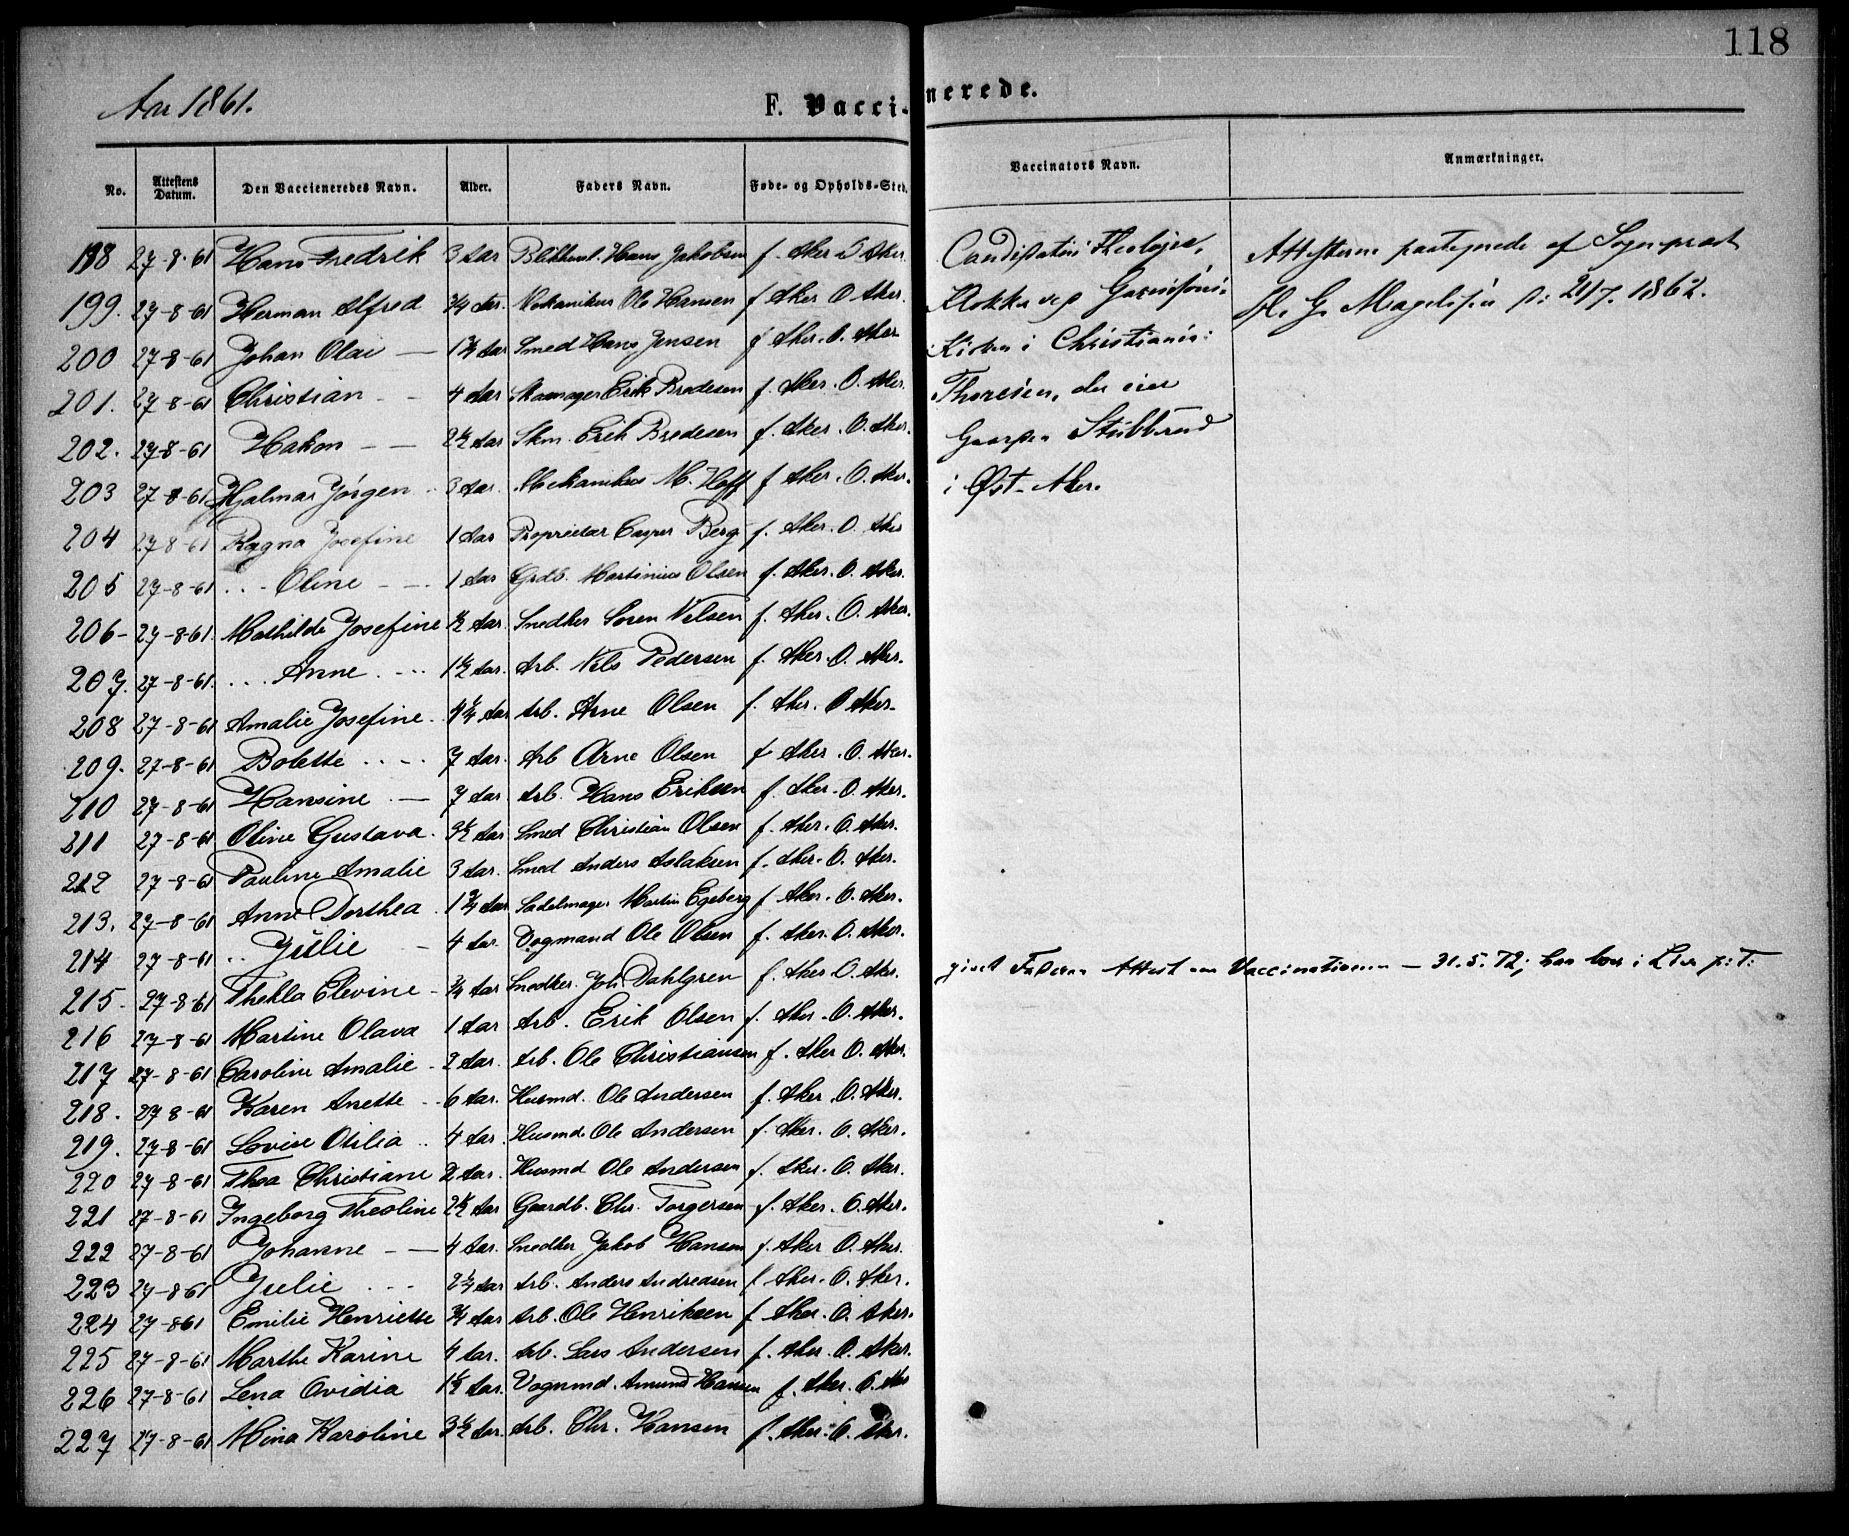 118
Aar 1861.
F. Vaccinerede.
No. Attestens Datum. Den Vaccieneredes Navn. Alder. Faders Navn. Føde- og Opholds-Sted. Vaccinators Navn. Anmærkninger.
198 27-8-61 Hans Fredrik 3 Aar Hans Jakobsen f. Aker O Aker. Candidatus Theologiæ, Attesterne paategnede af Sogneprest
199. 27-8-61 Herman Alfred 3/4 Aar. Mekanikus Ole Hansen f Aker O Aker. Klokker ved Garnisons- 21/7. 1862.
200 27-8-61 Johan Olai — 1 3/4 Aar Smed Hans Jensen f Aker. O. Aker Kirken i Christiania:
201. 27-8-61 Christian - - 4 Aar Erik Bredesen f. Aker. O. Aker. Thoresen, der eier
202. 27-8-61 Hakon - — 2 1/2 Aar Skm. Erik Bredesen f. Aker. O. Aker. Gaarden Stubberud
203 27-8-61 Hjalmar Jørgen .. 3 Aar. Mekanikus M. Hoff f Aker. O. Aker. i Øst-Aker.
204 27-8-61 Ragna Josefine 1 Aar Proprietær Casper Berg f. Aker. O. Aker
205 27-8-61 ... Oline - - 1 Aar Grdb. Martinius Olsen f. Aker. O. Aker.
206- 27-8-61. Mathilde Josefine 1/2 Aar. Snedker Soren Nelsen f. Aker. O. Aker.
207. 27-8-61. ... Anne. - .. 1 1/2 Aar. Arb. Nils Pedersen f. Aker. O. Aker.
208 27-8-61 Amalie Josefine. Aar Arb. Arne Olsen f. Aker. O Aker.
209. 27-8-61 Bolette .... 7 Aar. Arb Arne Olsen f Aker. O. Aker.
210 27-8-61 Hansine — 7 Aar. Arb. Hans Eriksen f. Aker. O. Aker.
211 27-8-61 Oline Gustava. Aar Smed Christian Olsen f. Aker. O. Aker.
212 27-8-61 Pauline Amalie 3 Aar. Smed Anders Aslaksen f. Aker. O. Aker.
213. 27-8-61 Anne Dorthea 1 3/4 Aar Sadelmager Martin Egeberg f Aker. O. Aker.
214 27-8-61 .. Julie - 4 Aar. Vogmand Ole Olsen f. Aker. O. Aker.
215. 27-8-61 Thekla Elevine - 3/4 Aar Snedker. Joh. Dahlgren f. Aker. O. Aker. givet Faderen Attest om Vaccinationen — 31.5.72; han bor i
216 27-8-61 Martine Olava 1 Aar Arb. Erik Olsen f. Aker. O. Aker.
217 27-8-61 Caroline Amalie - 2 Aar. Arb. Ole Christiansen f. Aker O. Aker.
218. 27-8-61 Karen Anette - 6 Aar. Husmd. Ole Andersen f. Aker. O. Aker.
219. 27-8-61 Lovise Otilia .. 4 Aar. Husmd. Ole Andersen f. Aker. O. Aker.
220 27-8-61 Thea Christiane 2 Aar. Husmd Ole Andersen f. Aker. O. Aker.
221 27-8-61 Ingeborg Theoline 2 1/2 Aar Gaardb. Chr. Torgersen f. Aker. O. Aker.
222 27-8-61 Johanne - — 4 Aar. Snedker Jakob Hansen f. Aker O. Aker.
223 27-8-61 Julie ... 2 1/4 Aar Arb. Anders Andreasen f Aker. O. Aker.
224 27-861 Emilie Henriette 3/4 Aar Arb. Ole Henriksen f Aker. O. Aker.
225 27-8-61 Marthe Karine 4 Aar. Arb. Lars Andersen f. Aker. O. Aker.
226 27-8-61 Lena Ovidia 1 1/2 Aar. Vognmd. Amund Hansen f. Aker. O. Aker
227 27-8-61 Mina Karoline 3 1/2 Aar. Arb. Chr. Hansen f. Aker. O. Aker.